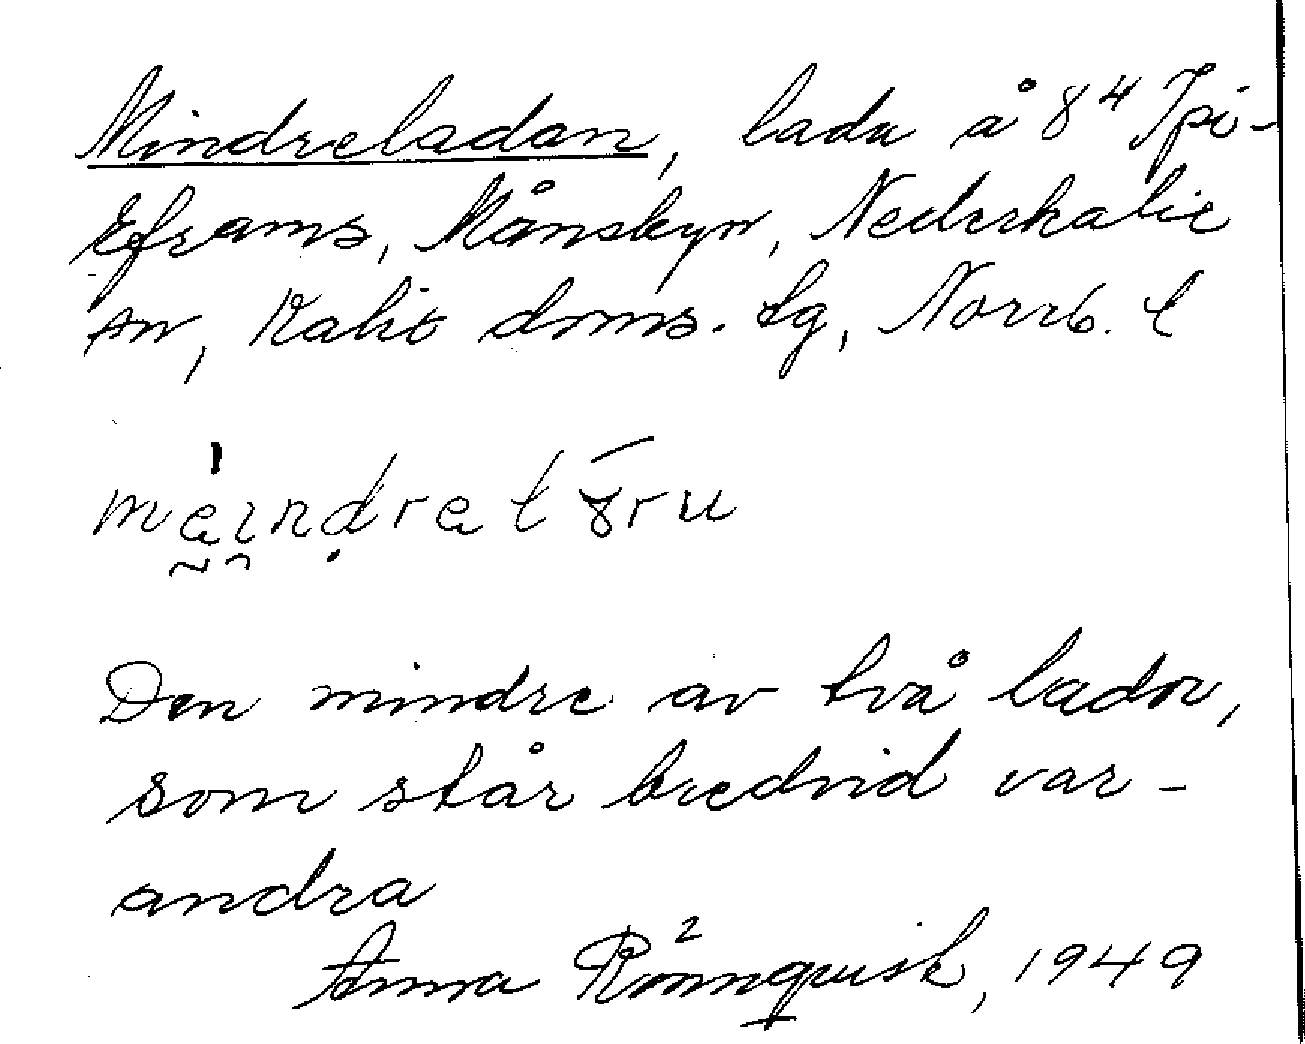 Mindreladan, lada å 8⁴ Ipi-
Eframs, Månsbyn, Nederkalix
sn, Kalix doms. tg, Norrb. l
Den mindre av två lador,
som står bredvid var-
andra
Anna Rönnquist, 1949